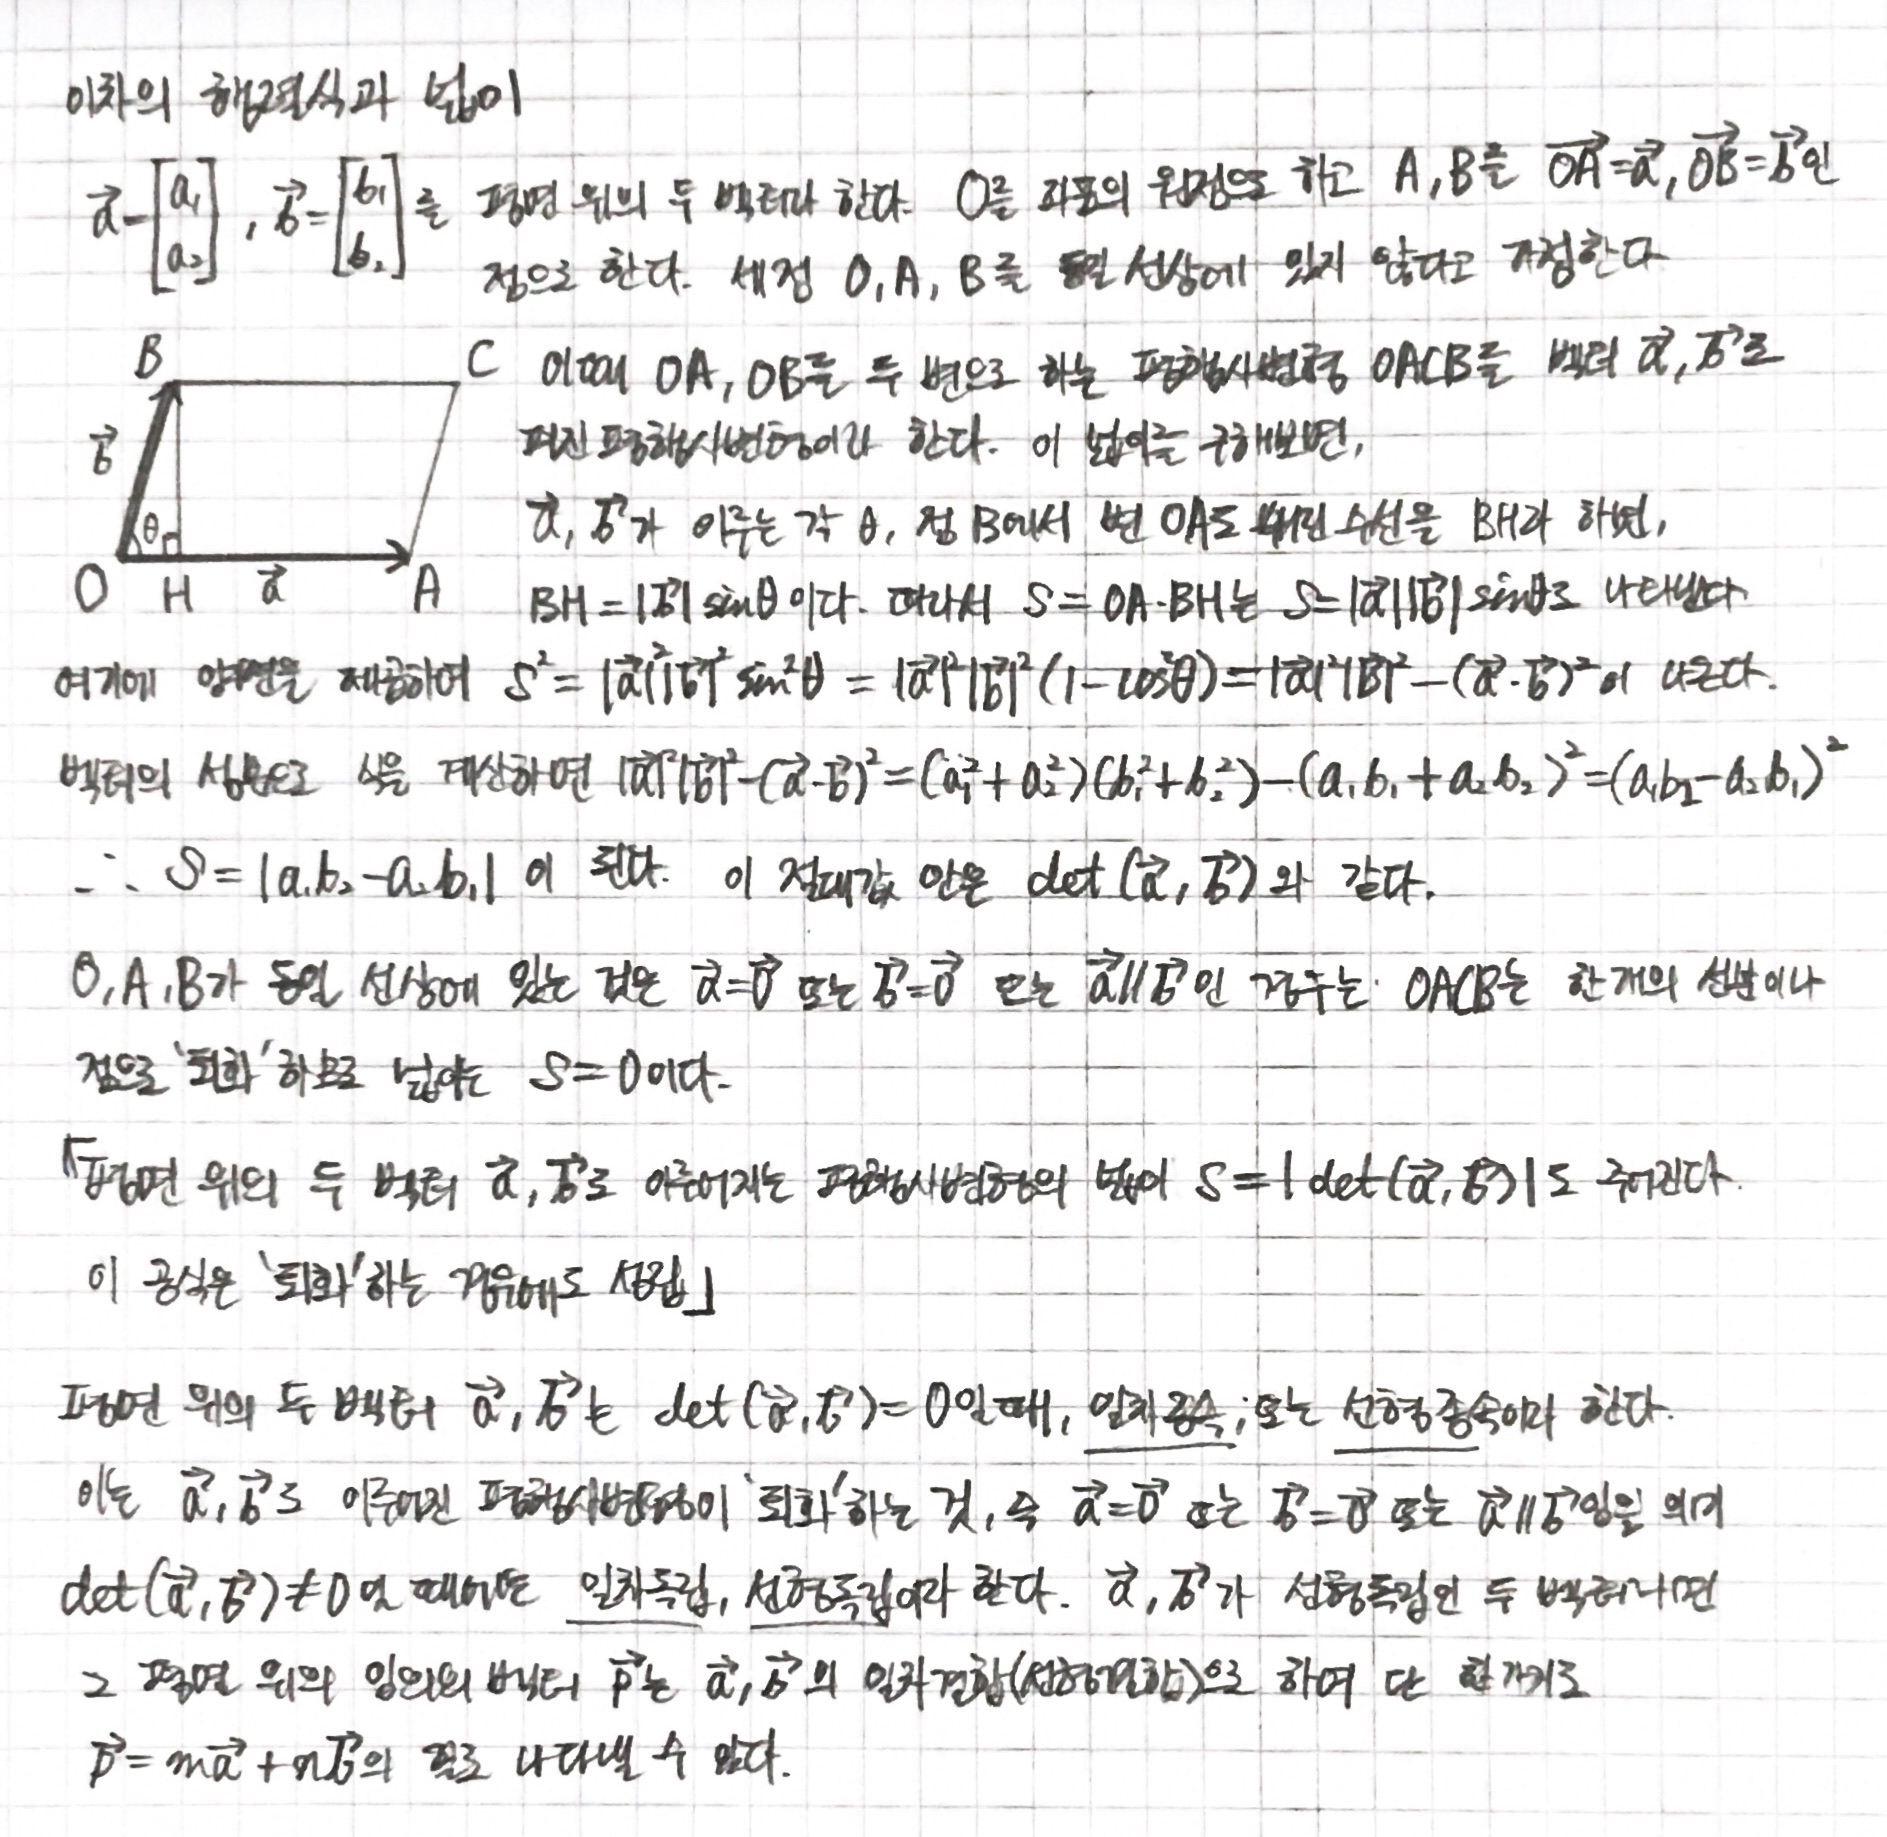 이차의 행렬식과 넓이
a⃗ = [a₁ a₂], b⃗ = [b₁ b₂]를 평면 위의 두 벡터라 한다. O를 좌표의 원점으로 하고 A, B를 OA⃗ = a⃗, OB⃗ = b⃗인
점으로 한다. 세점 O, A, B를 동일 선상에 있지 않다고 가정한다
B C
이때 OA, OB를 두 변으로 하는 평행사변형 OACB를 벡터 a⃗, b⃗로
b⃗
펴진 평행사변형이라 한다. 이 넓이를 구해보면,
θ
a⃗, b⃗가 이루는 각 θ, 점 B에서 변 OA로 내린 수선을 BH라 하면,
O H a⃗ A
BH = |b⃗| sinθ이다. 따라서 S = OA·BH는 S = |a⃗||b⃗| sinθ로 나타낸다
여기에 양변을 제곱하여 S² = |a⃗|²|b⃗|² sin²θ = |a⃗|²|b⃗|²(1 - cos²θ) = |a⃗|²|b⃗|² - (a⃗·b⃗)²이 나온다.
벡터의 성분으로 식을 계산하면 |a⃗|²|b⃗|² - (a⃗·b⃗)² = (a₁² + a₂²)(b₁² + b₂²) - (a₁b₁ + a₂b₂)² = (a₁b₂ - a₂b₁)²
∴ S = |a₁b₂ - a₂b₁| 이 된다. 이 절대값 안은 det(a⃗, b⃗)와 같다.
O, A, B가 동일 선상에 있는 것은 a⃗ = 0⃗ 또는 b⃗ = 0⃗ 또는 a⃗ // b⃗인 경우는 OACB는 한 개의 선분이나
점으로 '퇴화'하므로 넓이는 S = 0이다.
「평면 위의 두 벡터 a⃗, b⃗로 이루어지는 평행사변형의 넓이 S = |det(a⃗, b⃗)|로 주어진다.
이 공식은 '퇴화'하는 경우에도 성립」
평면 위의 두 벡터 a⃗, b⃗는 det(a⃗, b⃗) = 0일 때, 일차종속, 또는 선형종속이라 한다.
이는 a⃗, b⃗로 이루어진 평행사변형이 '퇴화'하는 것, 즉 a⃗ = 0⃗ 또는 b⃗ = 0⃗ 또는 a⃗ // b⃗임을 의미
det(a⃗, b⃗) ≠ 0일 때에는 일차독립, 선형독립이라 한다. a⃗, b⃗가 선형독립인 두 벡터라면
그 평면 위의 임의의 벡터 p⃗는 a⃗, b⃗의 일차결합(선형결합)으로 하여 단 한가지로
p⃗ = ma⃗ + nb⃗의 꼴로 나타낼 수 있다.